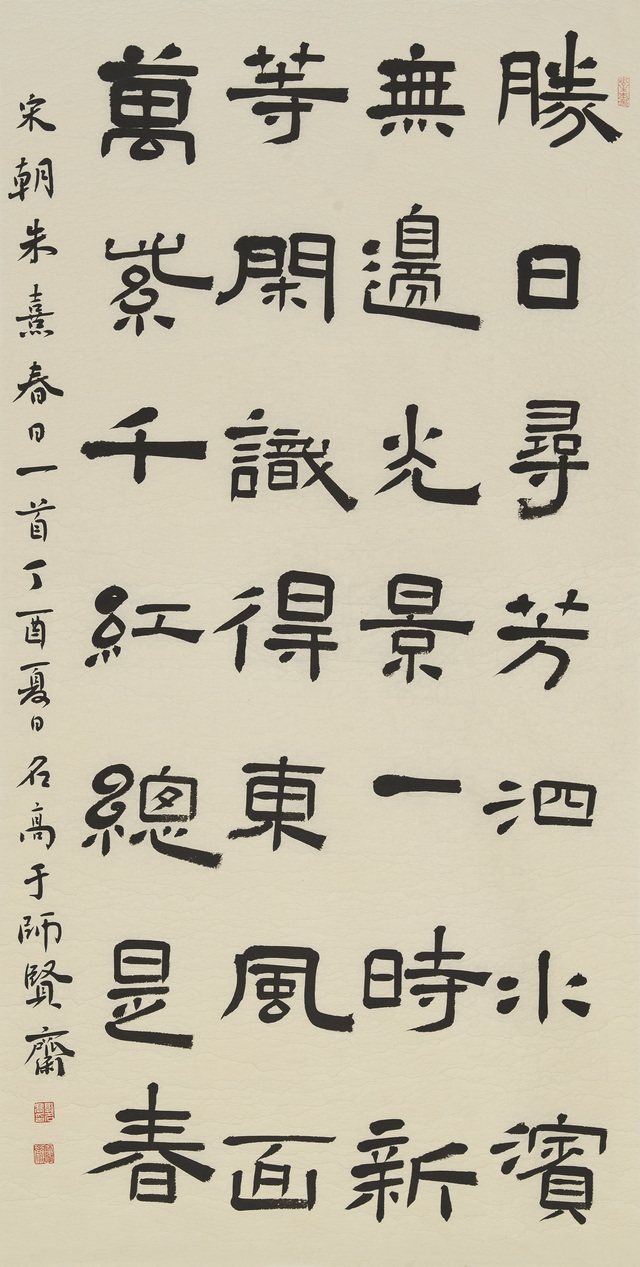 勝日尋芳泗水濱
無邊光景一時新
等閑識得東風面
萬紫千紅總是春
宋朝朱熹春日一首丁酉夏日名高于師賢齋